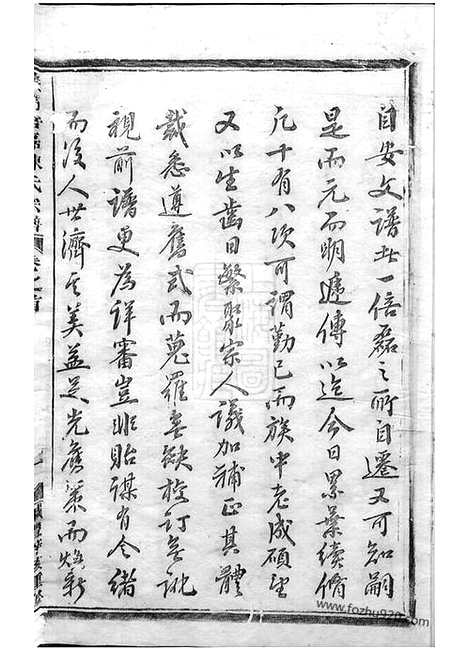 自安文譜其一倍磊之所自遷又可知嗣
是而元而明遞傳以迄今日累葉續脩
凡十有八次可謂勤已而族中老成碩望
又以生齒日繁聚宗人議加補正其體
裁悉遵舊式而蒐羅無缺校訂無訛
視前譜更為詳審豈非貽謀有令緒
而後人世濟其美益足光舊業而煥新
www.fozhu920.com